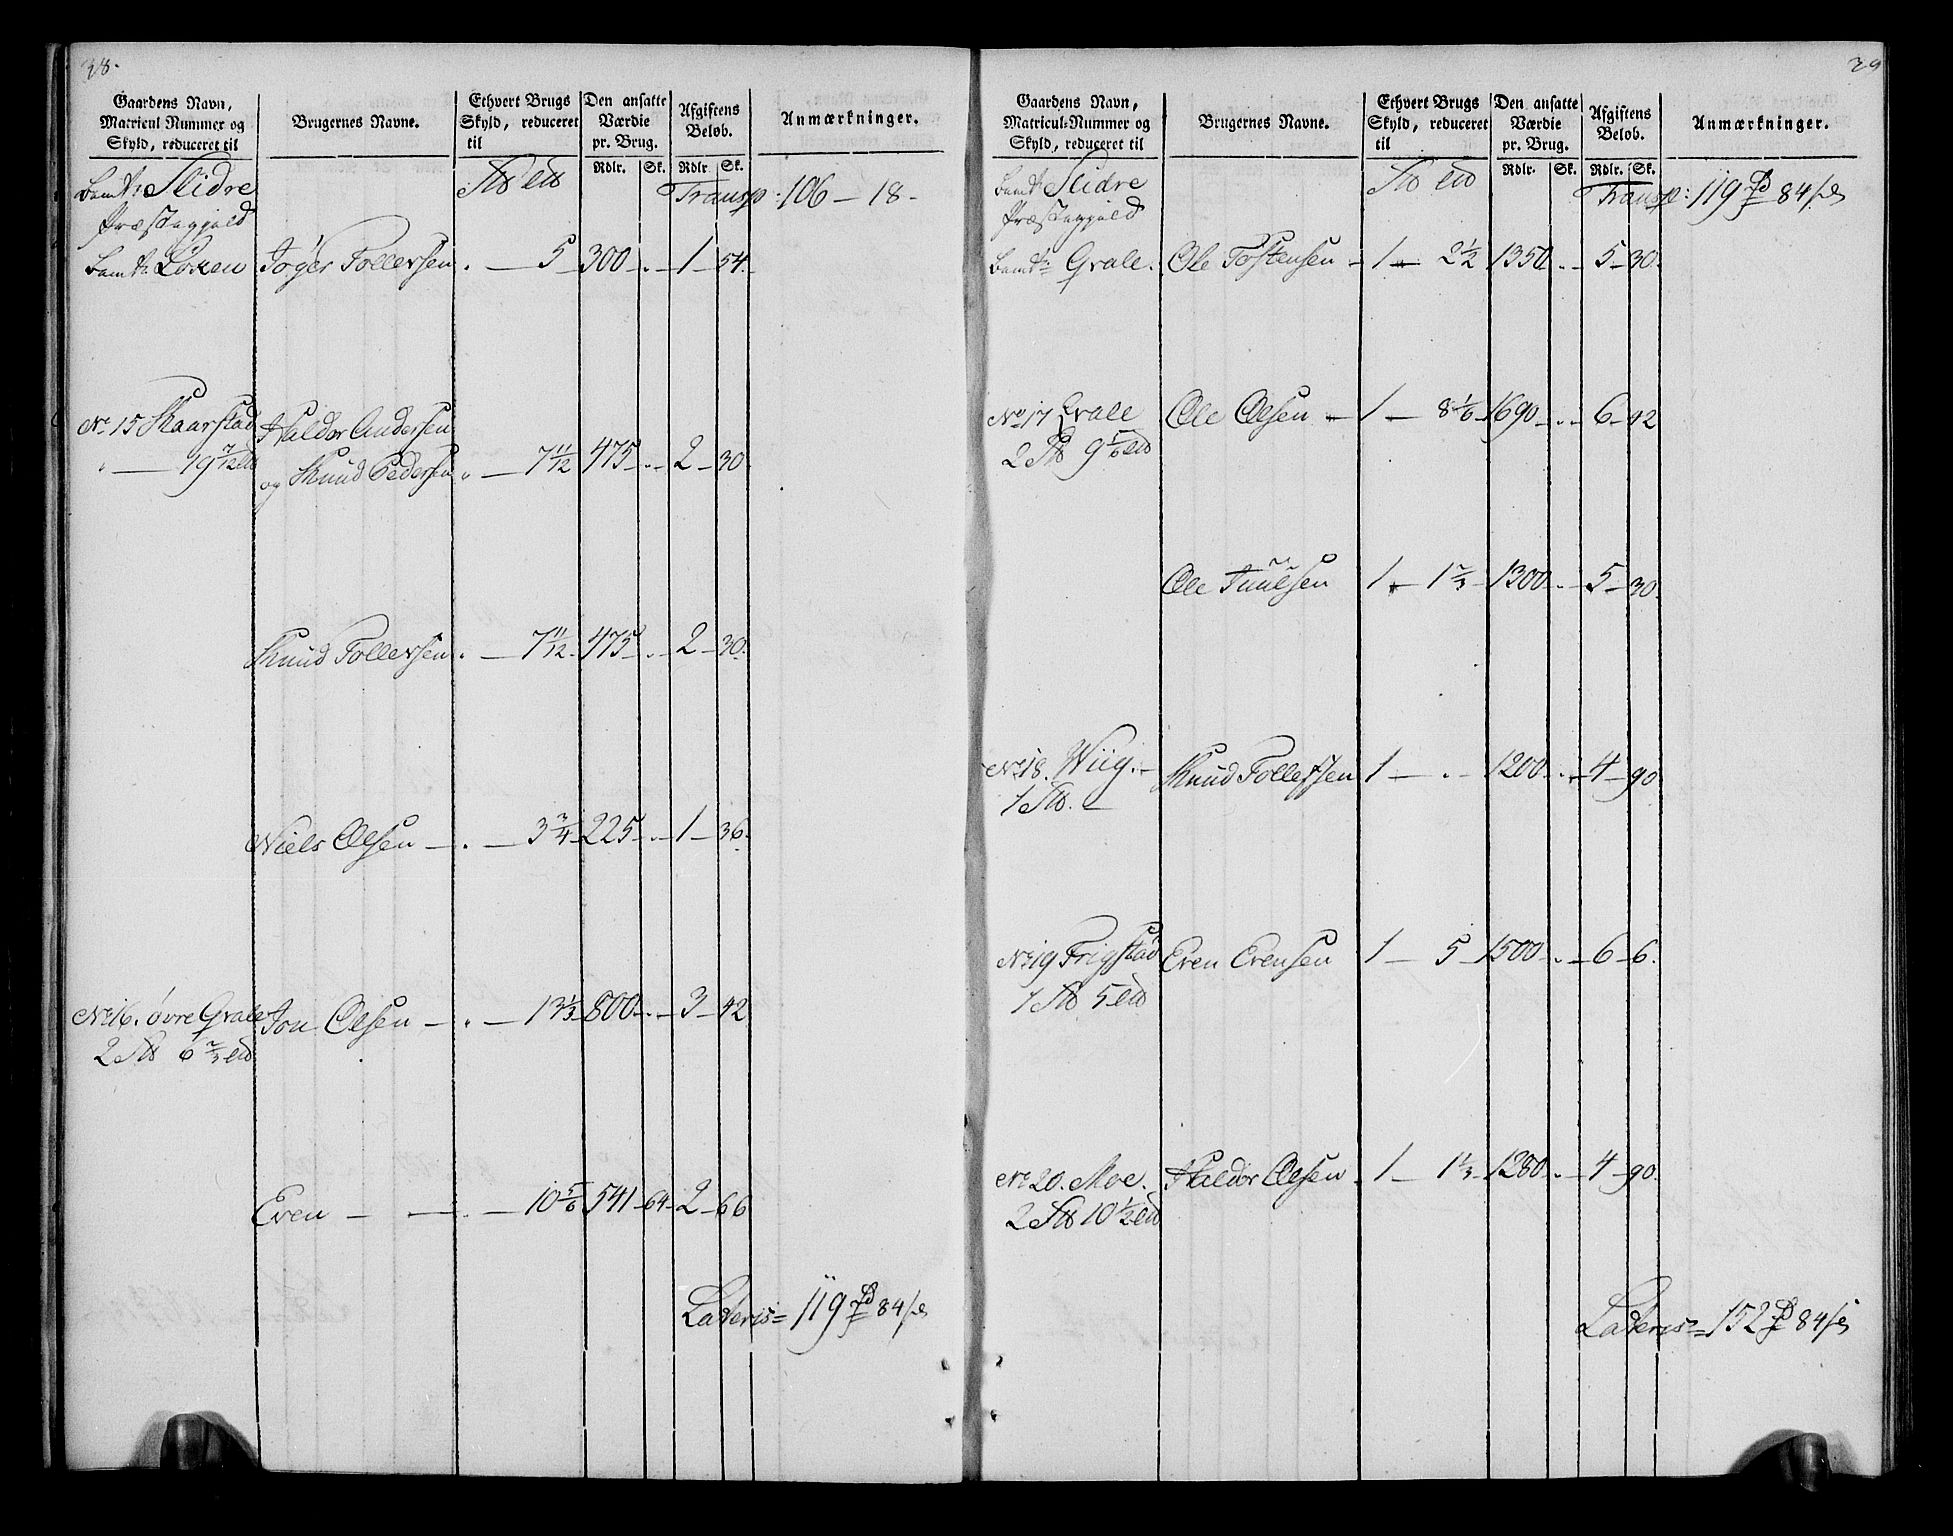 38.
Gaardens Navn, Matricul Nummer og Skyld, reduceret til
Brugernes Navne.
Ethvert Brugs Skyld, reduceret til
Den ansatte Værdie pr. Brug.
Afgiftens Beløb.
Anmærkninger.
Rdlr. Sk. Rdlr Sk.
Slidre Transp: 106 - 18 -
Præstegjeld
Løken Tollersen . - 5 - 300 - . - 1 - 54.
No 15 Skaarstad Haldor Andersen
" - 19 7/12 og Knud Pedersen " - 7 11/12 475 - . - 2 - 30.
Knud Tollersen . - 7 11/12 - 475 - . - 2 - 30.
Niels Olsen - . - 3 3/4 - 225 - . - 1 - 36.
No 16. øvre Qvale Jon Olsen - . - 13 1/3 - 800 - . - 3 - 42
2 6 2/3
Even - - . - 10 5/6 541 - 64 - 2 - 66
Lateris = 119 84
39
Gaardens Navn, Matricul-Nummer og Skyld, reduceret til
Brugernes Navne.
Ethvert Brugs Skyld, reduceret til
Den ansatte Værdie pr. Brug.
Afgiftens Beløb.
Anmærkninger.
Rdlr. Sk. Rdlr. Sk.
Slidre Transp: 119 84
Præstegjeld
Qvale. Ole Tostensen - 1 - 2 1/2 1350 . - 5 - 30.
No 17 Qvale Ole Olsen - 1 - 8 1/6 - 1690 - . - 6 - 42
2 9 5/6
Ole Juulsen 1 - 1 2/3 - 1300 - . - 5 - 30.
No 18. Wiig. - Knud Tollefsen 1 - . - 1200 - . - 4 - 90
1
No 19 Trigstad Even Evensen 1 - 5 - 1500 - . - 6 - 6.
1 5
No 20. Moe. Haldor Olsen - 1 - 1 1/3 - 1280 - . - 4 - 90.
2 10 1/2
Lateris = 152 84